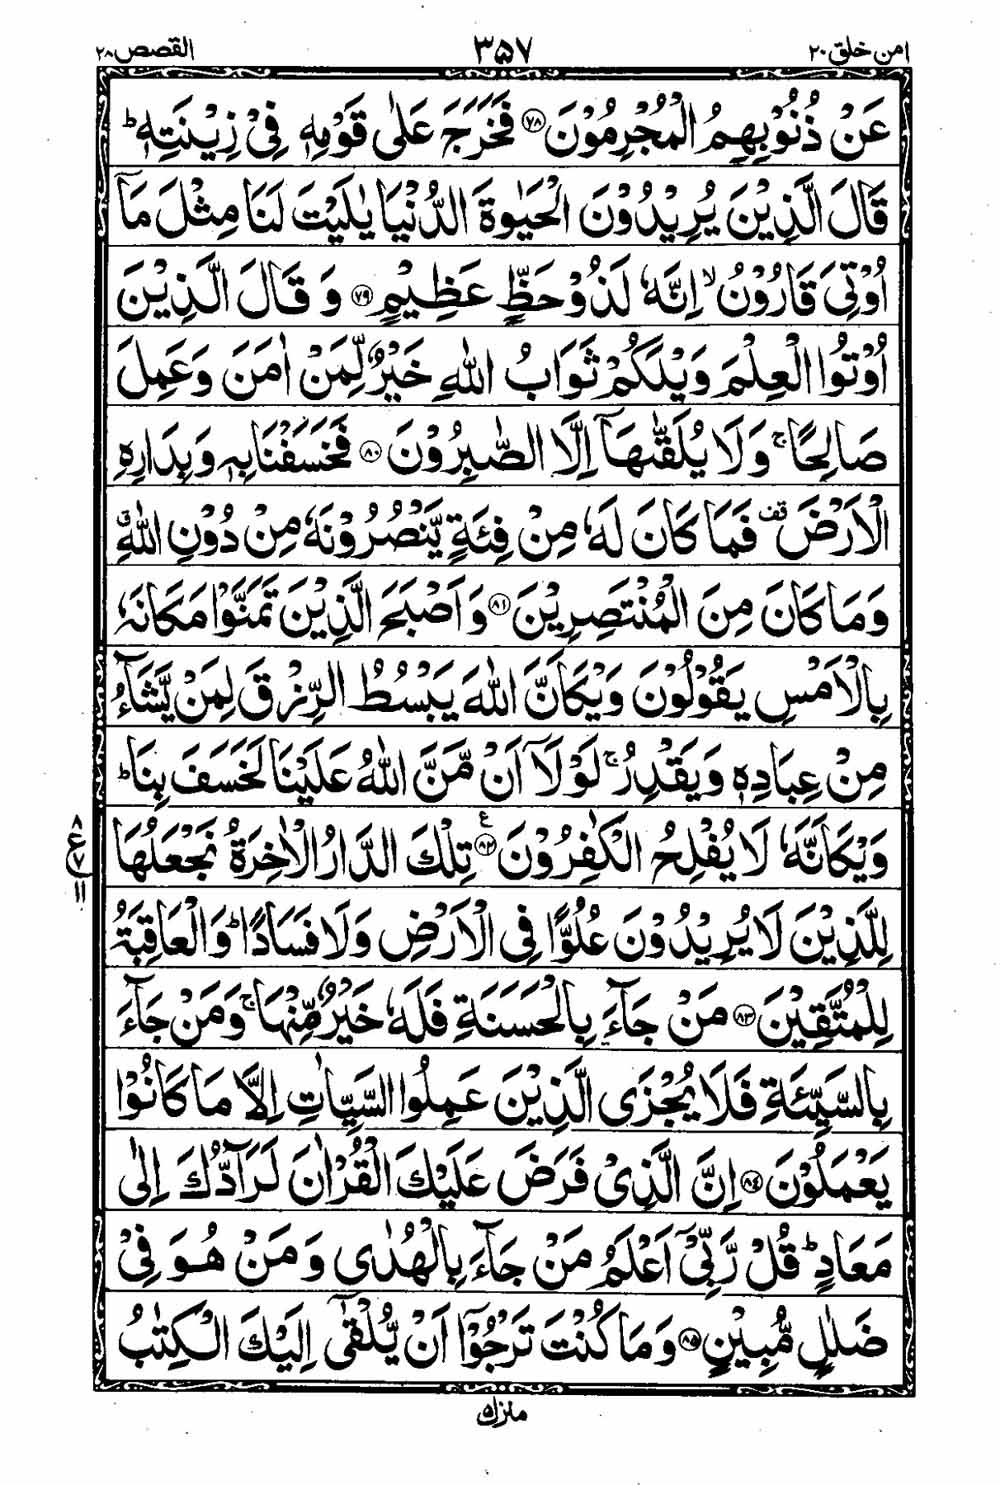 امن خلق ۲۰
۳۵۷
القصص ۲۸
عَنْ ذُنُوْبِهِمُ الْمُجْرِمُوْنَ ﴿۷۸﴾ فَخَرَجَ عَلٰى قَوْمِهٖ فِیْ زِیْنَتِهٖ ؕ
قَالَ الَّذِیْنَ یُرِیْدُوْنَ الْحَیٰوةَ الدُّنْیَا یٰلَیْتَ لَنَا مِثْلَ مَاۤ
اُوْتِیَ قَارُوْنُ ۙ اِنَّهٗ لَذُوْ حَظٍّ عَظِیْمٍ ﴿۷۹﴾ وَ قَالَ الَّذِیْنَ
اُوْتُوا الْعِلْمَ وَیْلَكُمْ ثَوَابُ اللّٰهِ خَیْرٌ لِّمَنْ اٰمَنَ وَعَمِلَ
صَالِحًا ۚ وَلَا یُلَقّٰىهَاۤ اِلَّا الصّٰبِرُوْنَ ﴿۸۰﴾ فَخَسَفْنَا بِهٖ وَبِدَارِهِ
الْاَرْضَ ۫ فَمَا كَانَ لَهٗ مِنْ فِئَةٍ یَّنْصُرُوْنَهٗ مِنْ دُوْنِ اللّٰهِ ۗ
وَمَا كَانَ مِنَ الْمُنْتَصِرِیْنَ ﴿۸۱﴾ وَاَصْبَحَ الَّذِیْنَ تَمَنَّوْا مَكَانَهٗ
بِالْاَمْسِ یَقُوْلُوْنَ وَیْكَاَنَّ اللّٰهَ یَبْسُطُ الرِّزْقَ لِمَنْ یَّشَآءُ
مِنْ عِبَادِهٖ وَیَقْدِرُ ۚ لَوْلَاۤ اَنْ مَّنَّ اللّٰهُ عَلَیْنَا لَخَسَفَ بِنَا ؕ
وَیْكَاَنَّهٗ لَا یُفْلِحُ الْكٰفِرُوْنَ ﴿۸۲﴾ ع تِلْكَ الدَّارُ الْاٰخِرَةُ نَجْعَلُهَا
۸ ع ۷ ۱۱
لِلَّذِیْنَ لَا یُرِیْدُوْنَ عُلُوًّا فِی الْاَرْضِ وَلَا فَسَادًا ؕ وَالْعَاقِبَةُ
لِلْمُتَّقِیْنَ ﴿۸۳﴾ مَنْ جَآءَ بِالْحَسَنَةِ فَلَهٗ خَیْرٌ مِّنْهَا ۚ وَمَنْ جَآءَ
بِالسَّیِّئَةِ فَلَا یُجْزَى الَّذِیْنَ عَمِلُوا السَّیِّاٰتِ اِلَّا مَا كَانُوْا
یَعْمَلُوْنَ ﴿۸۴﴾ اِنَّ الَّذِیْ فَرَضَ عَلَیْكَ الْقُرْاٰنَ لَرَآدُّكَ اِلٰى
مَعَادٍ ؕ قُلْ رَّبِّیْۤ اَعْلَمُ مَنْ جَآءَ بِالْهُدٰى وَمَنْ هُوَ فِیْ
ضَلٰلٍ مُّبِیْنٍ ﴿۸۵﴾ وَمَا كُنْتَ تَرْجُوْۤا اَنْ یُّلْقٰۤى اِلَیْكَ الْكِتٰبُ
منزل ۵